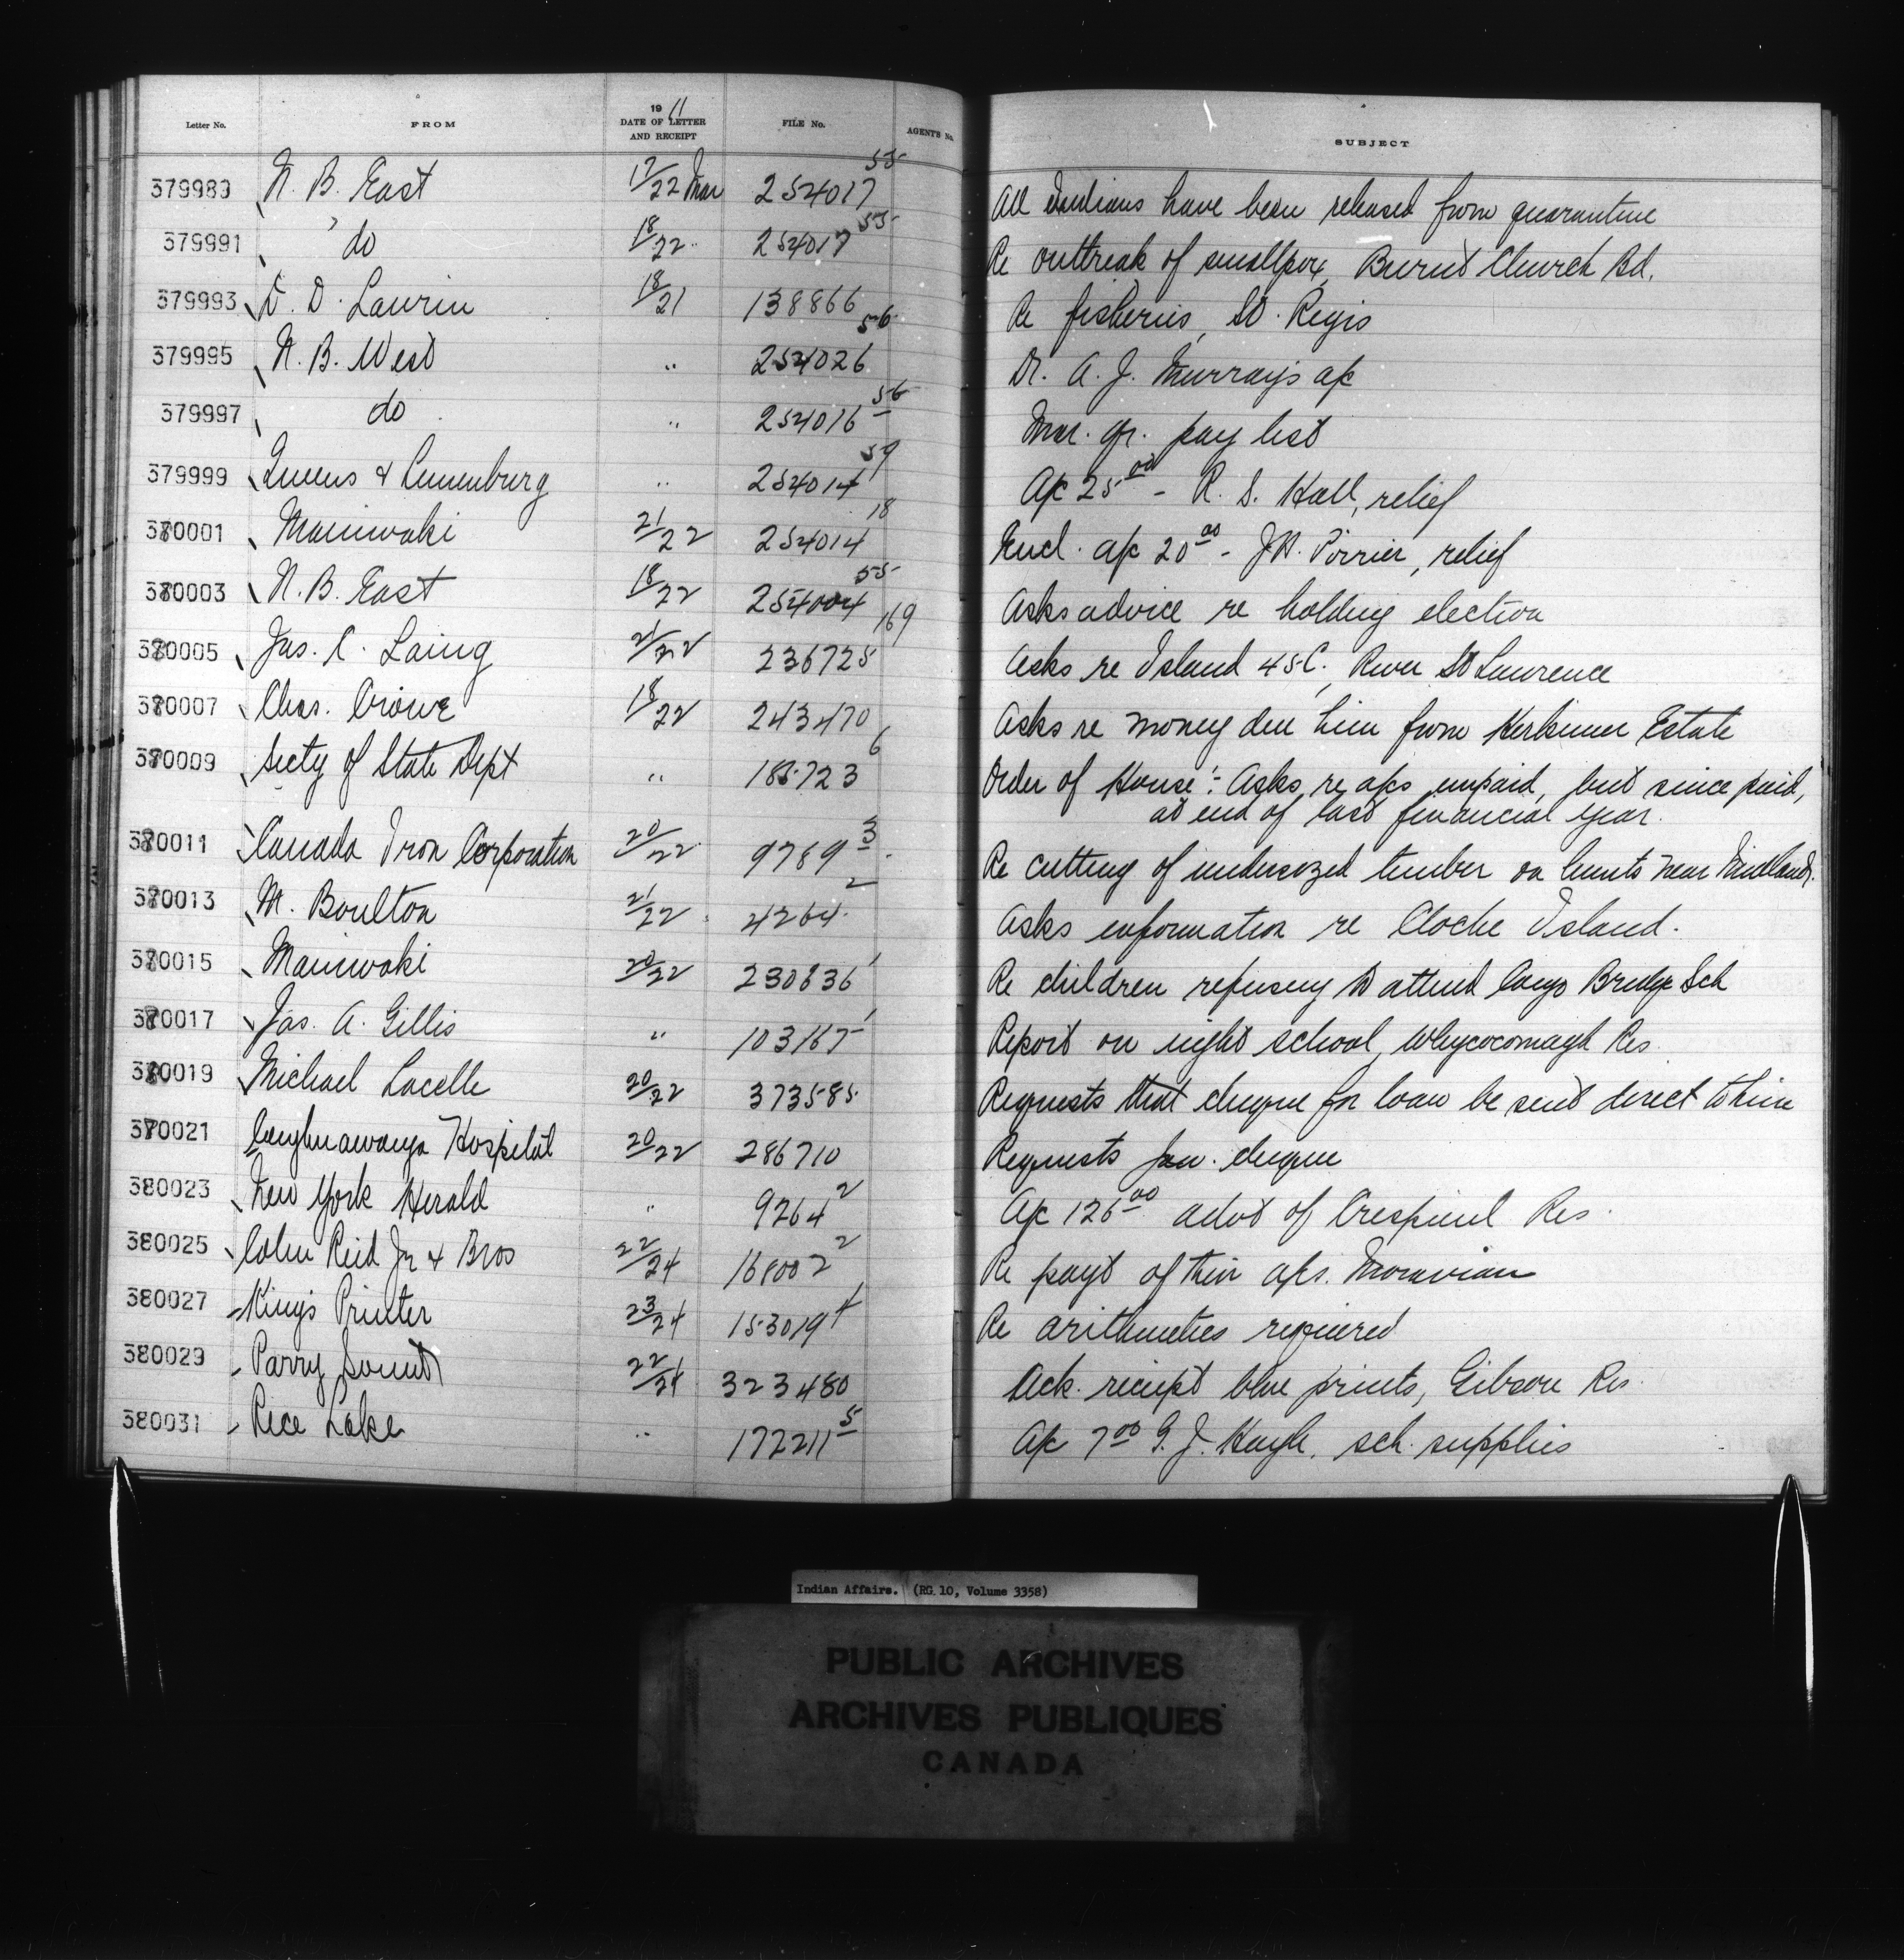 Letter No. FROM 1911 DATE OF LETTER AND RECEIPT FILE No. AGENTS No. SUBJECT
379989 N. B. East 17/22 Mar 254017 55 All Indians have been released from quarantine
379991 do 18/22 254017 55 Re outbreak of smallpox, Burnt Church Bd.
379993 D. Laurin 18/21 138866 Re fisheries, St. Regis
379995 N. B. West " 254026 56 Dr. A. J. Murray's a/c
379997 do " 254016 56 Mar. qr. pay list
379999 Queens & Lunenburg " 254014 59 A/c 25 00 - R. S. Hall, relief
380001 Maniwaki 21/22 254014 18 Encl. a/c 20 00 - J.A. Poirier, relief
380003 N. B. East 18/22 254004 55 Asks advice re holding election
380005 Jas. C. Laing 21/22 236725 169 Asks re Island 45C, River St Lawrence
380007 Chas. Crowe 18/22 243470 Asks re money due him from Kerkimer Estate
380009 Secty of State Dept " 185723 6 Order of House :- Asks re a/cs unpaid, but since paid,
at end of last financial year.
380011 Canada Iron Corporation 20/22 9789 3 Re cutting of undersized timber on limits near Midland.
380013 M. Boulton 21/22 4264 2 Asks information re Cloche Island.
380015 Maniwaki 20/22 230836 1 Re children refusing to attend Congo Bridge Sch
380017 Jas. A. Gillis " 103167 1 Report on night school, Whycocomagh Res
380019 Michael Lacelle 20/22 373585 Requests that cheque for loan be sent direct to him
380021 Caughnawaga Hospital 20/22 286710 Requests Jan. cheque
380023 New York Herald " 9264 2 A/c 126 00 advt of Crespieul Res.
380025 Colin Reid Jr & Bros 22/24 168002 2 Re payt of their a/cs. Moravian
380027 King's Printer 23/24 153019 4 Re arithmetics required
380029 Parry Sound 22/24 323480 Ack. receipt blue prints, Gibson Res.
380031 Rice Lake " 172211 5 A/c 7 00 G. J. Hayle, sch. supplies
Indian Affairs. (RG 10, Volume 3358)
PUBLIC ARCHIVES
ARCHIVES PUBLIQUES
CANADA